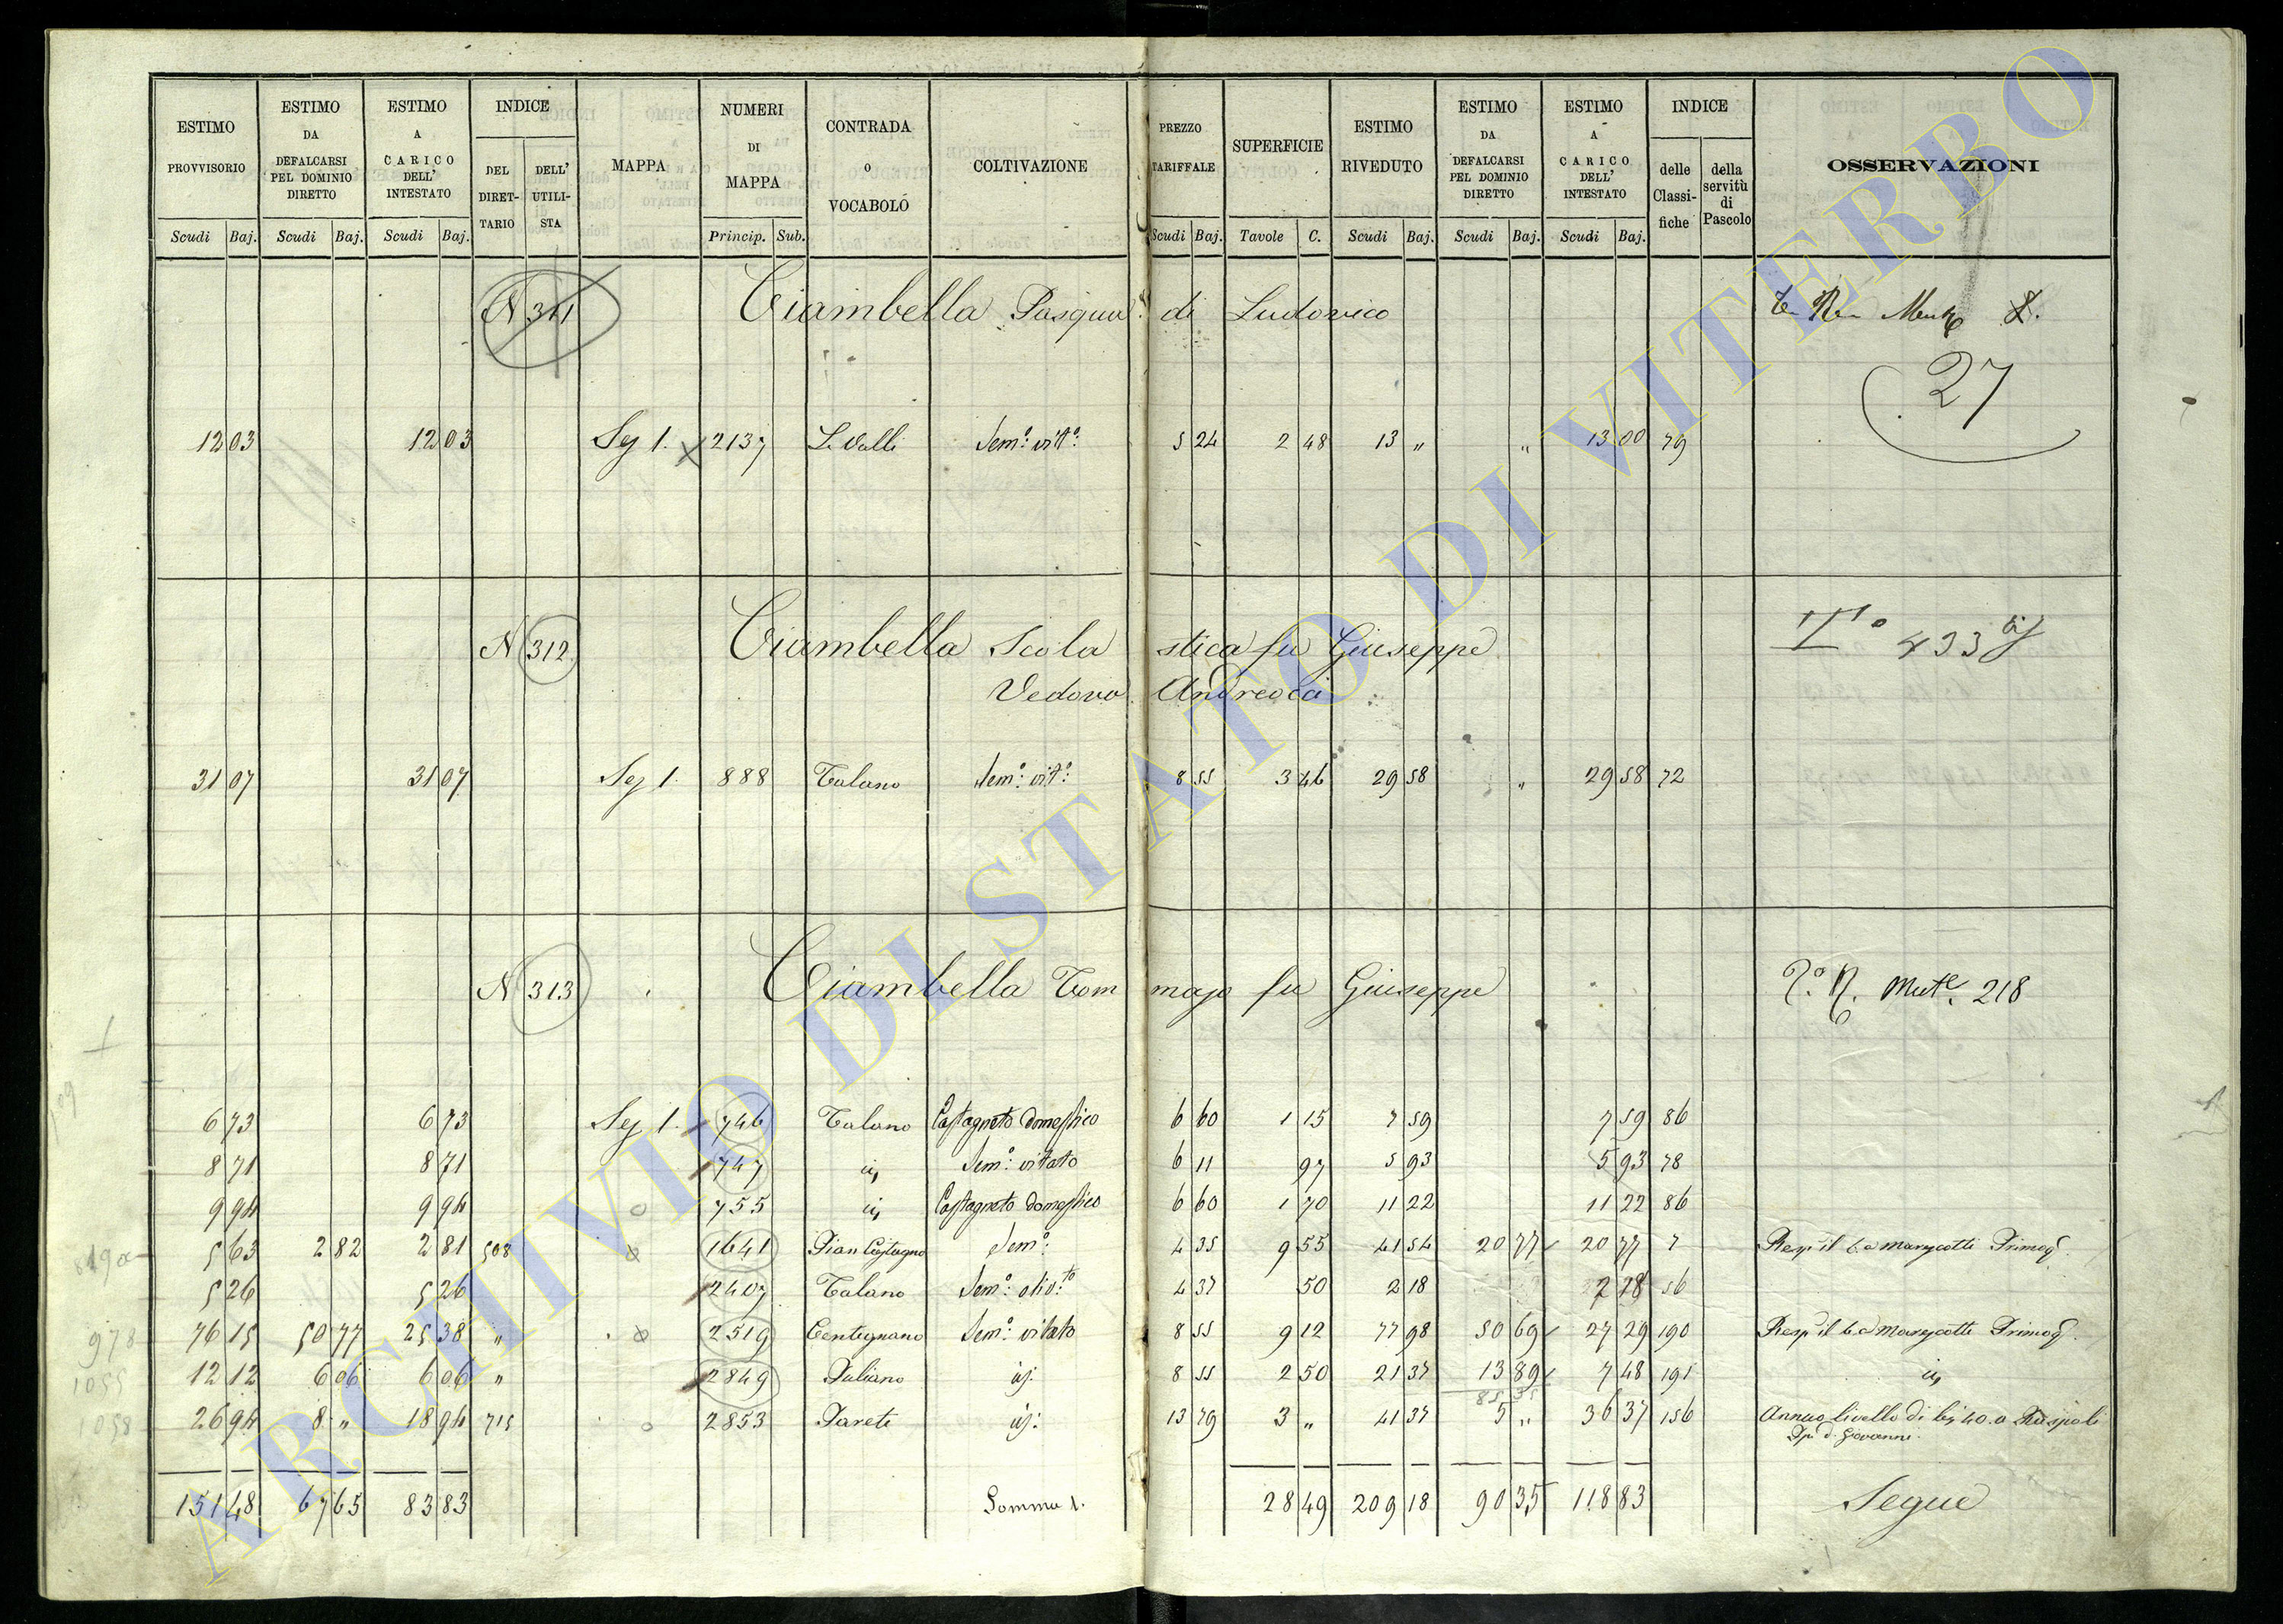 ESTIMO PROVVISORIO Scudi Baj. ESTIMO DA DEFALCARSI PEL DOMINIO DIRETTO Scudi Baj. ESTIMO A CARICO DELL' INTESTATO Scudi Baj. INDICE DEL DIRET-TARIO DELL' UTILI-STA MAPPA NUMERI DI MAPPA Princip. Sub. CONTRADA O VOCABOLO COLTIVAZIONE PREZZO TARIFFALE Scudi Baj. SUPERFICIE Tavole C. ESTIMO RIVEDUTO Scudi Baj. ESTIMO DA DEFALCARSI PEL DOMINIO DIRETTO Scudi Baj. ESTIMO A CARICO DELL' INTESTATO Scudi Baj. INDICE delle Classi-fiche della servitù di Pascolo OSSERVAZIONI
N 311 Ciambella Pasqua di Ludovico
27
12 03 12 03 Sez 1. 2137 Le Valli Sem.o vit.o 5 24 2 48 13 " " 13 00 79
N 312 Ciambella Scola stica fu Giuseppe 433
Vedova Andreocci
31 07 31 07 Sez 1. 888 Talano Sem.o vit.o 8 55 3 46 29 58 " 29 58 72
N 313 Ciambella Tom maso fu Giuseppe 218
6 73 6 73 Sez 1. 746 Talano Castagneto domestico 6 60 1 15 7 59 7 59 86
8 71 8 71 747 Sem.o vitato 6 11 97 5 93 5 93 78
9 94 9 94 755 Castagneto domestico 6 60 1 70 11 22 11 22 86
5 63 2 82 2 81 508 1641 Pian Castagno Sem.o 4 35 9 55 41 54 20 77 20 77 7 Marescotti
5 26 5 26 2407 Talano Sem.o oliv.to 4 37 50 2 18 2 18 56
978 76 15 50 77 25 38 " 2519 Centignano Sem.o vitato 8 55 9 12 77 98 50 69 27 29 190 Marescotti
1055 12 12 6 06 6 06 " 2849 Puliano 8 55 2 50 21 37 13 89 7 48 191
1058 26 94 8 " 18 94 715 2853 Parete 13 79 3 " 41 37 5 " 36 37 156 Annuo livello di 40 a Ruspoli
Giovanni
151 48 67 65 83 83 Somma 1. 28 49 209 18 90 35 118 83 Segue
ARCHIVIO DI STATO DI VITERBO